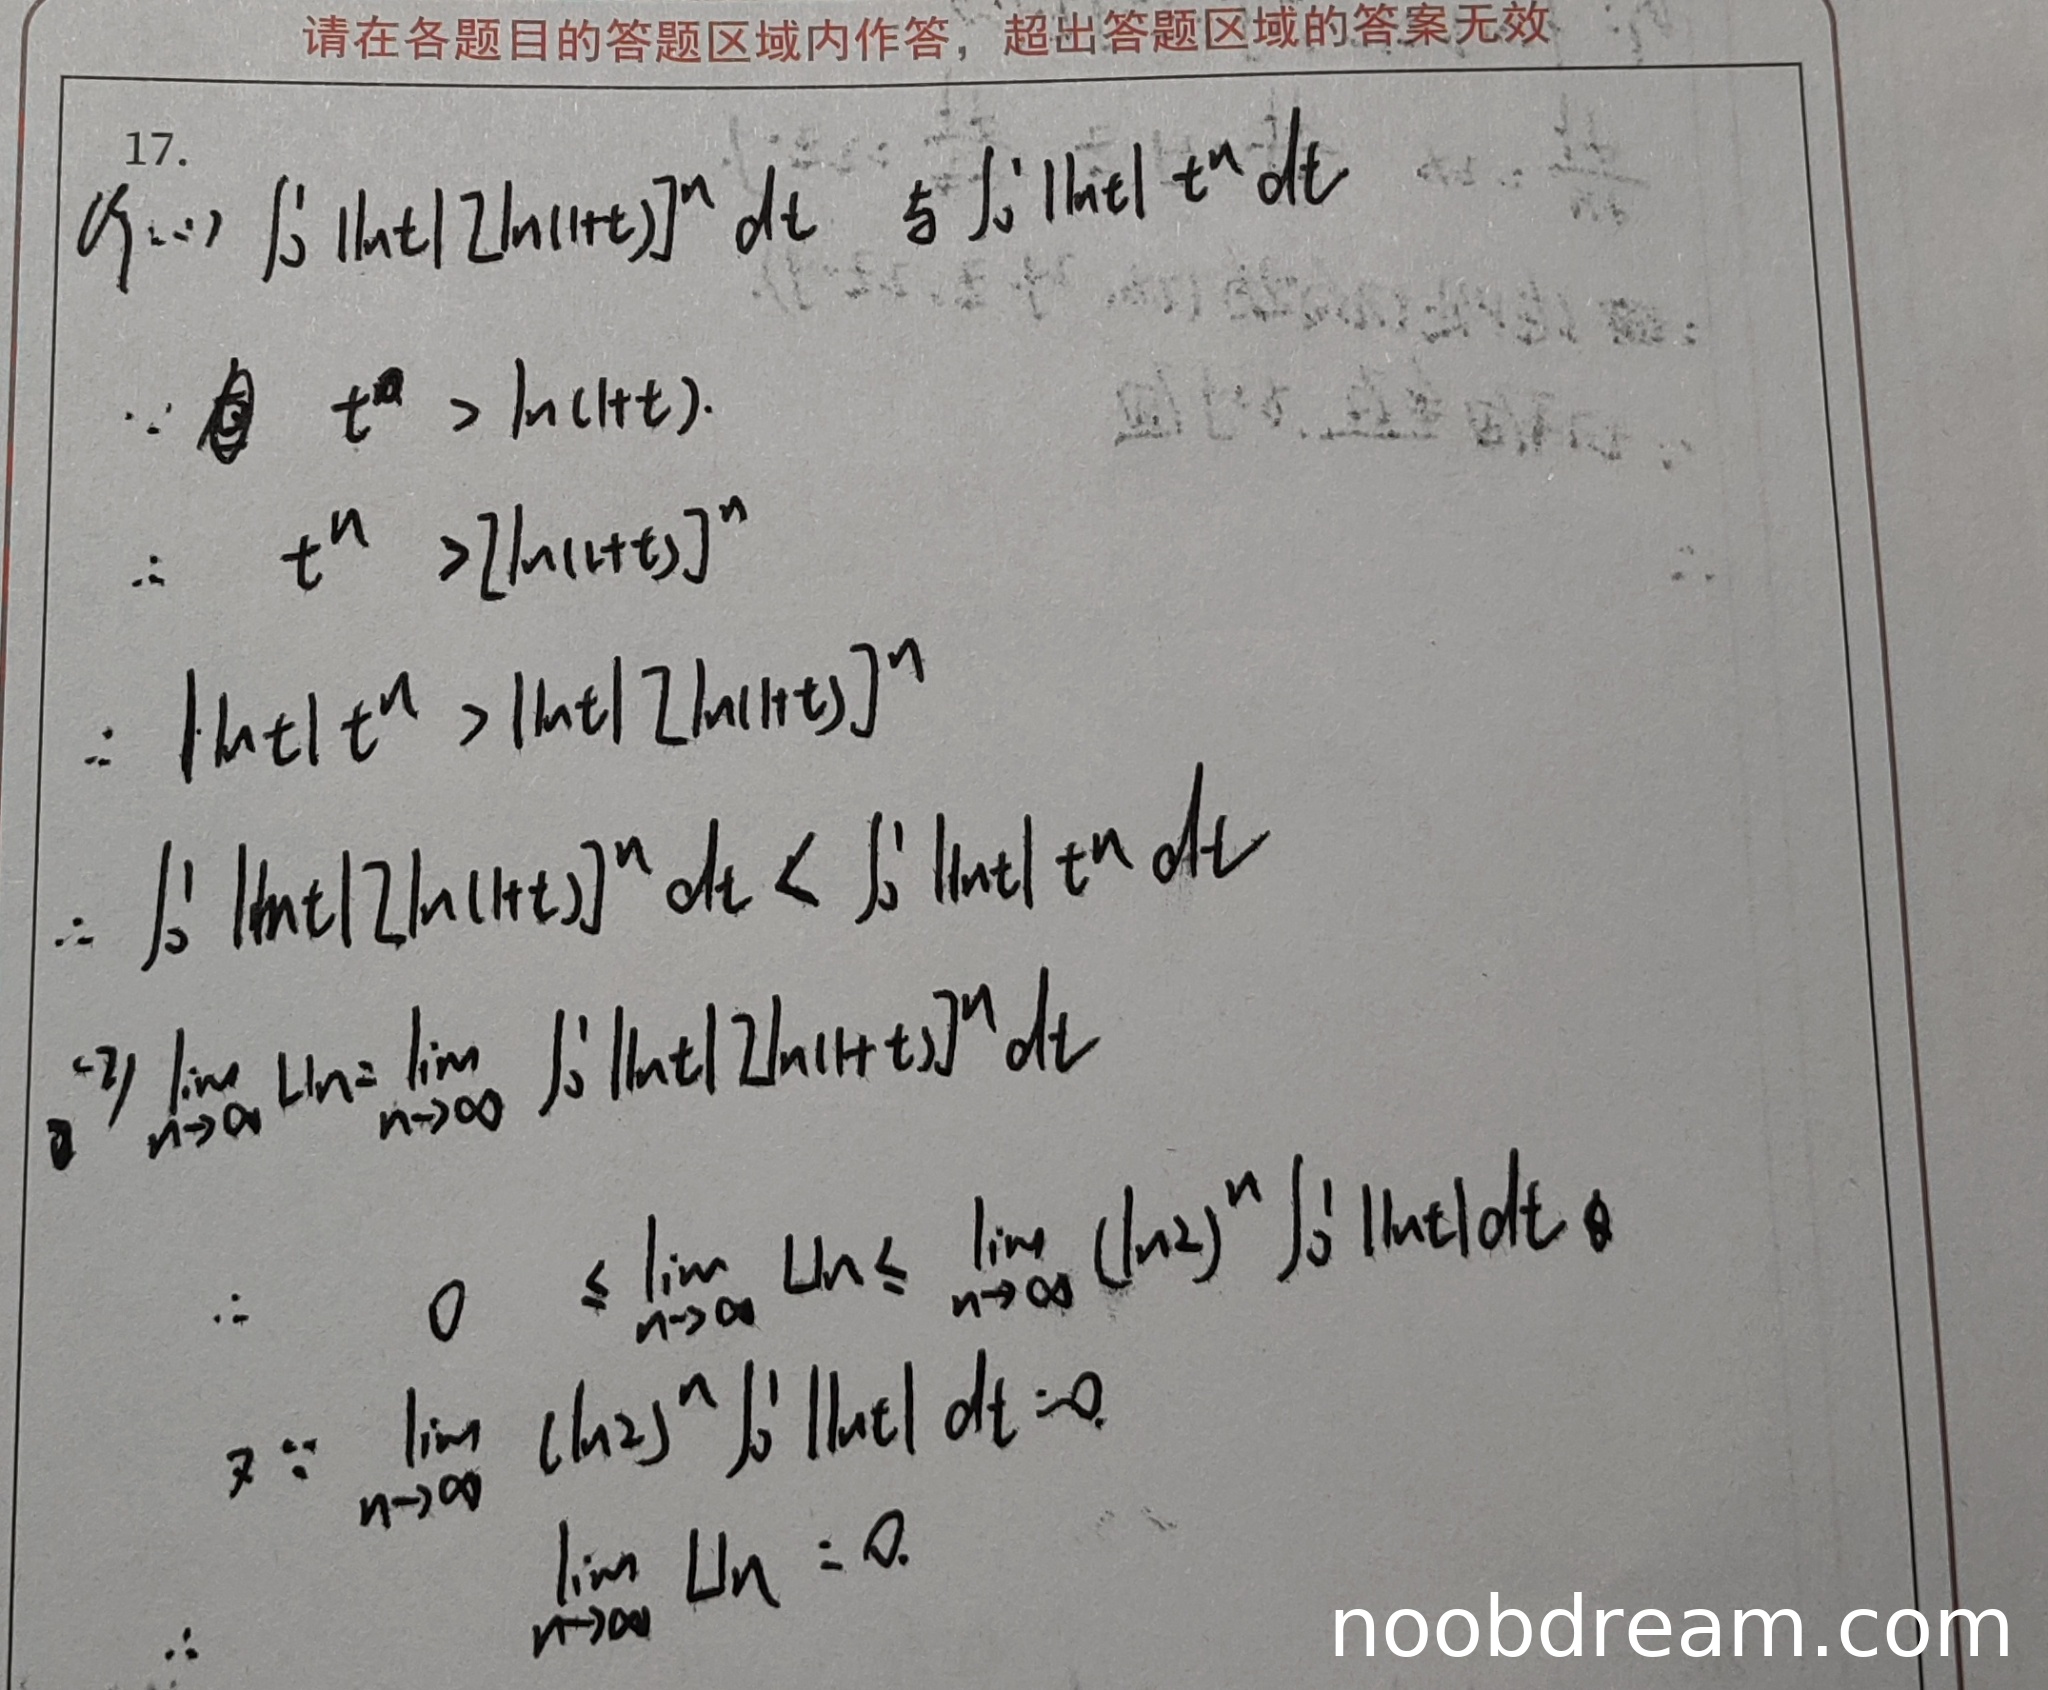 请在各题目的答题区域内作答，超出答题区域的答案无效
17.
∫₀¹ |lnt| [ln(1+t)]ⁿ dt 与 ∫₀¹ |lnt| tⁿ dt
∵ t > ln(1+t).
∴ tⁿ > [ln(1+t)]ⁿ
∴ |lnt| tⁿ > |lnt| [ln(1+t)]ⁿ
∴ ∫₀¹ |lnt| [ln(1+t)]ⁿ dt < ∫₀¹ |lnt| tⁿ dt
(2) lim n→∞ Un = lim n→∞ ∫₀¹ |lnt| [ln(1+t)]ⁿ dt
∴ 0 ≤ lim n→∞ Un ≤ lim n→∞ (ln2)ⁿ ∫₀¹ |lnt| dt
又∵ lim n→∞ (ln2)ⁿ ∫₀¹ |lnt| dt = 0.
∴ lim n→∞ Un = 0.
noobdream.com